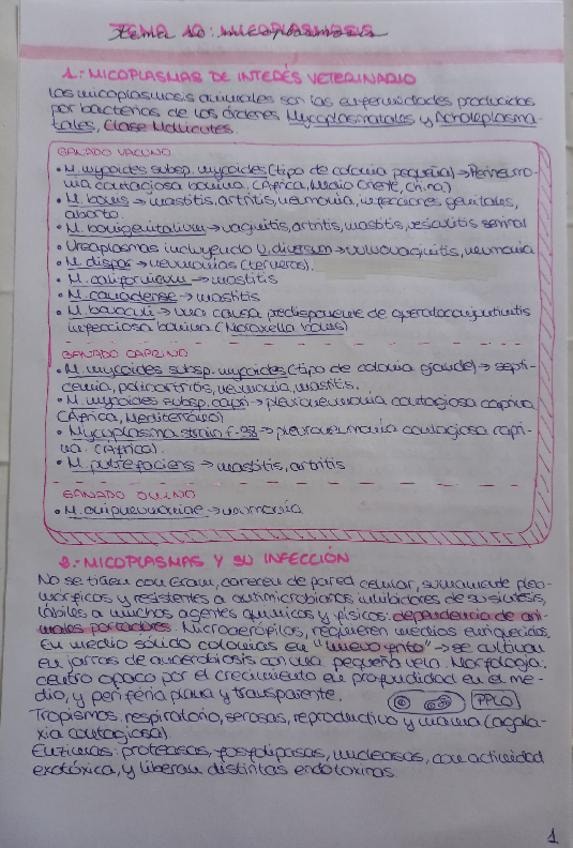 TEMA 10: MICOPLASMOSIS
1.- MICOPLASMAS DE INTERÉS VETERINARIO
Las micoplasmosis animales son las enfermedades producidas
por bacterias de los órdenes Mycoplasmatales y Acholeplasma-
tales, Clase Mollicutes.
GANADO VACUNO
• M. mycoides subsp. mycoides (tipo de colonia pequeña) → Perineumo-
nía contagiosa bovina. (África, Medio Oriente, China)
• M. bovis → mastitis, artritis, neumonía, infecciones genitales,
aborto.
• M. bovigenitalium → vaginitis, artritis, mastitis, vesiculitis seminal
• Ureaplasmas incluyendo U. diversum → vulvovaginitis, neumonía
• M. dispar → neumonías (terneros).
• M. californicum → mastitis
• M. canadense → mastitis
• M. bovoculi → una causa predisponente de queratoconjuntivitis
infecciosa bovina (Moraxella bovis)
GANADO CAPRINO
• M. mycoides subsp. mycoides (tipo de colonia grande) → septi-
cemia, poliartritis, neumonía, mastitis.
• M. mycoides subsp. capri → pleuroneumonía contagiosa caprina
(África, Mediterráneo)
• Mycoplasma strain F-38 → pleuroneumonía contagiosa capri-
na. (África).
• M. putrefaciens → mastitis, artritis
GANADO OVINO
• M. ovipneumoniae → neumonía
2.- MICOPLASMAS Y SU INFECCIÓN
No se tiñen con Gram, carecen de pared celular, sumamente pleo-
mórficos y resistentes a antimicrobianos inhibidores de su síntesis,
lábiles a muchos agentes químicos y físicos: dependencia de ani-
males portadores. Microaerófilos, requieren medios enriquecidos.
En medio sólido colonias en "huevo frito" → se cultivan
en jarras de anaerobiosis con una pequeña vela. Morfología:
centro opaco por el crecimiento en profundidad en el me-
dio, y periferia plana y transparente. PPLO
Tropismos: respiratorio, serosas, reproductivo y mama (agala-
xia contagiosa)
Enzimas: proteasas, fosfolipasas, nucleasas, con actividad
exotóxica, y liberan distintas endotoxinas.
1